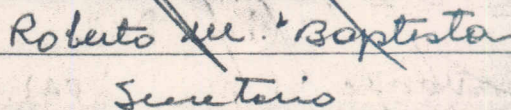 Roberto M. Baptista
Secretario